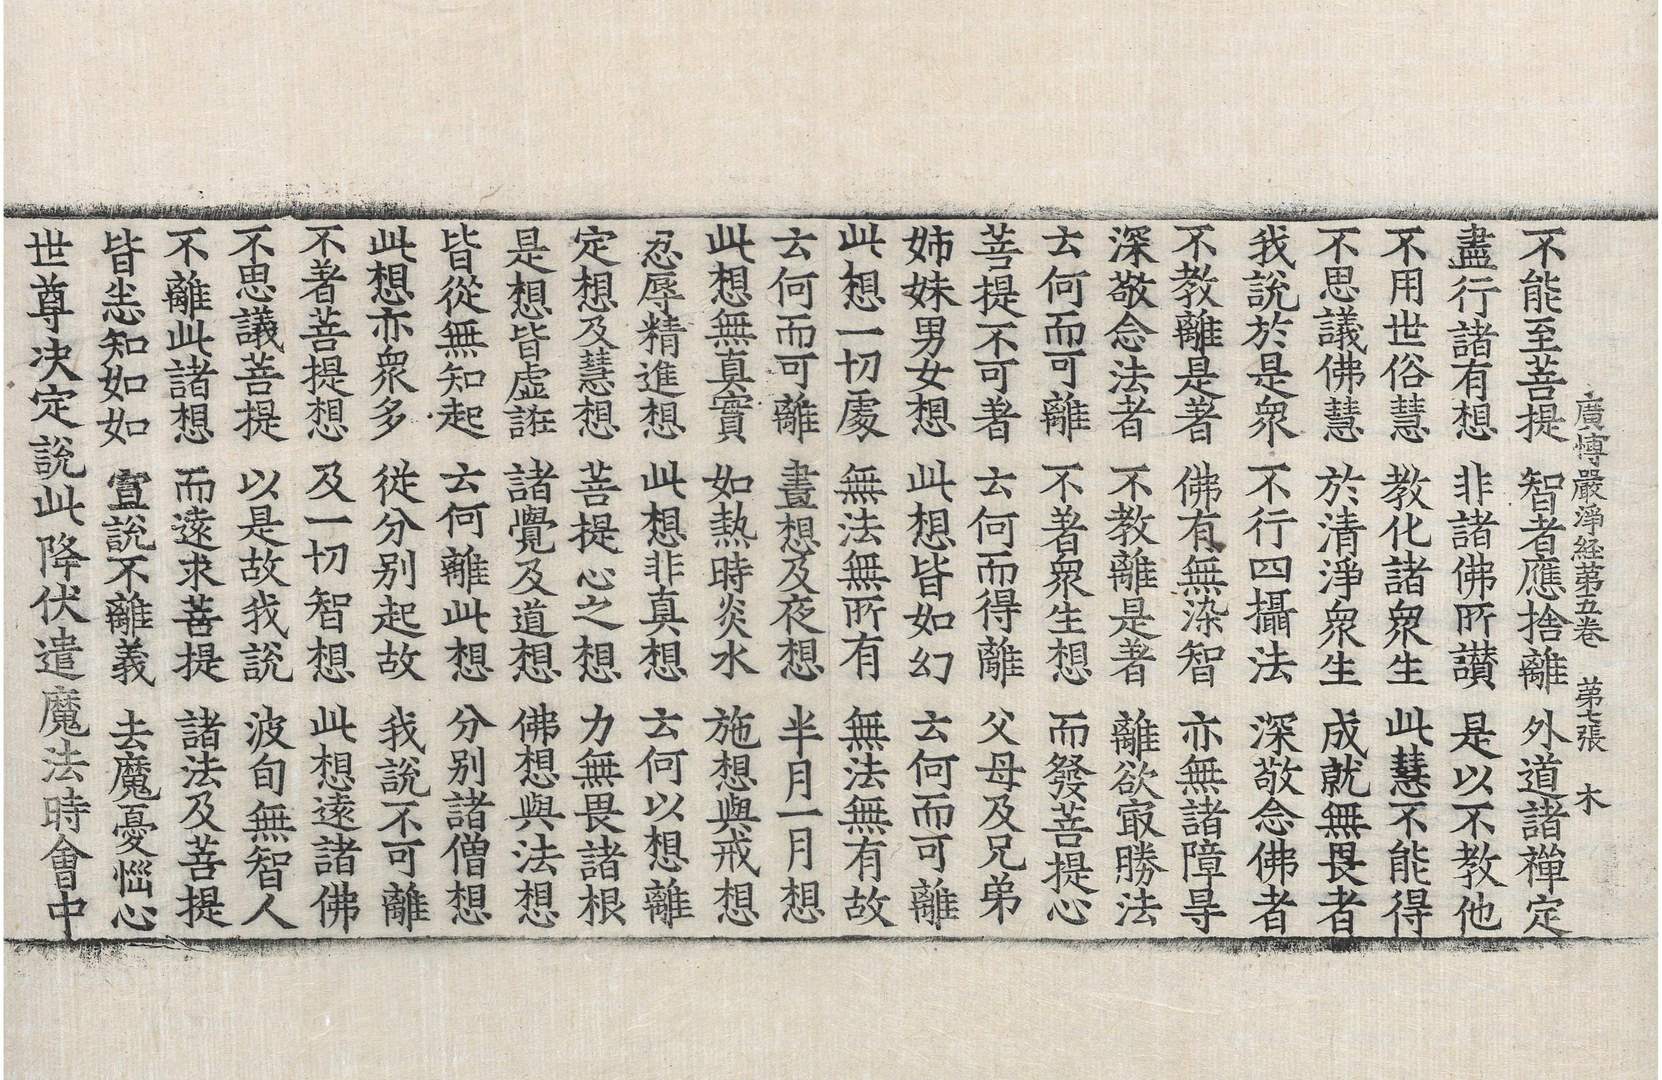 廣愽嚴淨経苐五巻　苐七張　木
不能至菩提　智者應捨離　外道諸禪定
盡行諸有想　非諸佛所讃　是以不教他
不用世俗慧　教化諸衆生　此慧不能得
不思議佛慧　於清淨衆生　成就無畏者
我說於是衆　不行四攝法　深敬念佛者
不教離是著　佛有無染智　亦無諸障㝵
深敬念法者　不教離是著　離欲㝡勝法
云何而可離　不著衆生想　而發菩提心
菩提不可著　云何而得離　父母及兄弟
姊妹男女想　此想皆如幻　云何而可離
此想一切處　無法無所有　無法無有故
云何而可離　晝想及夜想　半月一月想
此想無真實　如熱時炎水　施想與戒想
忍辱精進想　此想非真想　云何以想離
定想及慧想　菩提心之想　力無畏諸根
是想皆虛誑　諸覺及道想　佛想與法想
皆從無知起　云何離此想　分別諸僧想
此想亦衆多　從分別起故　我說不可離
不著菩提想　及一切智想　此想遠諸佛
不思議菩提　以是故我說　波旬無智人
不離此諸想　而遠求菩提　諸法及菩提
皆悉知如如　宣說不離義　去魔憂惱心
世尊决定說此降伏遣魔法時會中